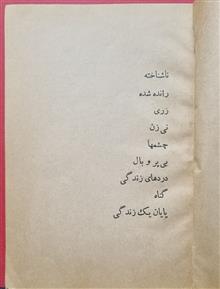 ناشناخته
رانده شده
زری
نی زن
چشمها
بی پر و بال
دردهای زندگی
گناه
پایان یک زندگی